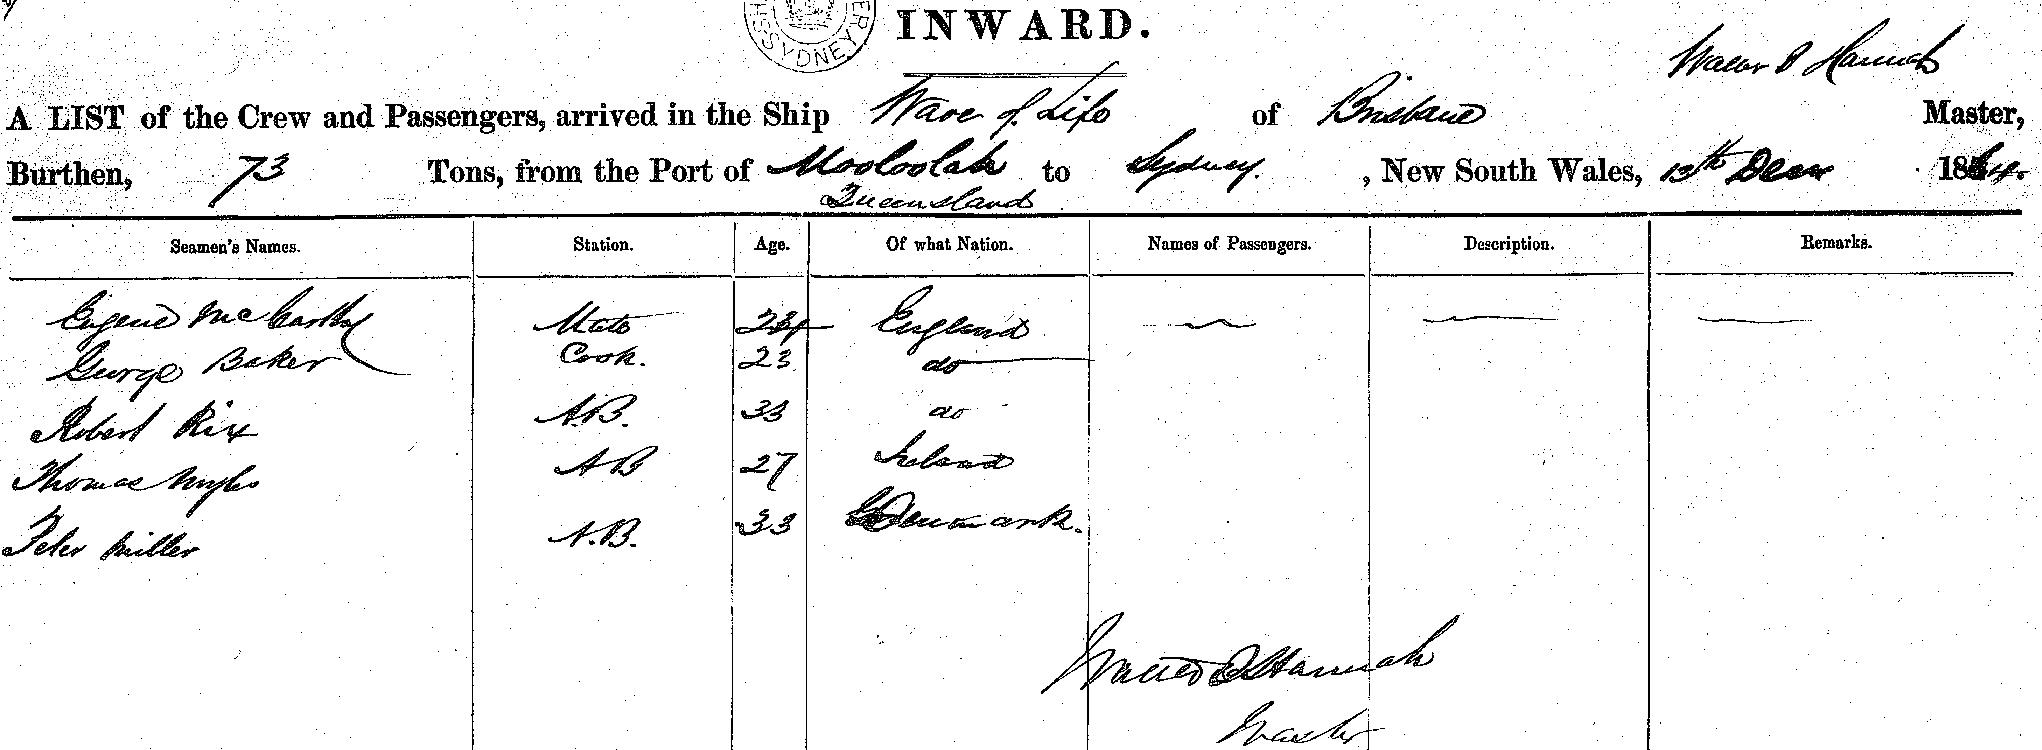 SYDNEY
INWARD.
Walter D Hannah
A LIST of the Crew and Passengers, arrived in the Ship Wave of Life of Brisbane Master,
Burthen, 73 Tons, from the Port of Mooloolah to Sydney. , New South Wales, 13th Decr 1864.
Queensland
Seamen's Names. Station. Age. Of what Nation. Names of Passengers. Description. Remarks.
Eugene McCarthy Mate 24 England
George Baker Cook. 23 do
Robert Rix A.B. 33 do
Thomas A B 27 Ireland
Peter Miller A.B. 33 Denmark.
Walter D Hannah
Master